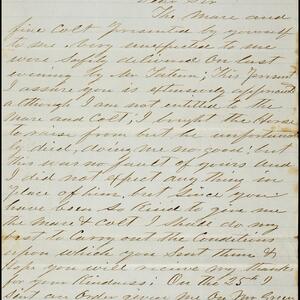 Dear Sir
The Mare and
fine Colt Presented by yourself
to me. Very unexpected to me
were Safely delivered On last
evening by Mr Tatum; This Present
I assure you is extensively appreciated
although I am not entitled to the
Mare and Colt; I bought the Horse
to raise from but he unfortunately
died, doing me no good; but
this was no fault of yours and
I did not expect any thing in
Place of him, but Since you
have been so kind to give me
the Mare & Colt I shall do my
best to Carry out the Conditions
upon which you Sent them &
hope you will receive my thanks
for your Kindness; On the 25th
an Order given me On Mr